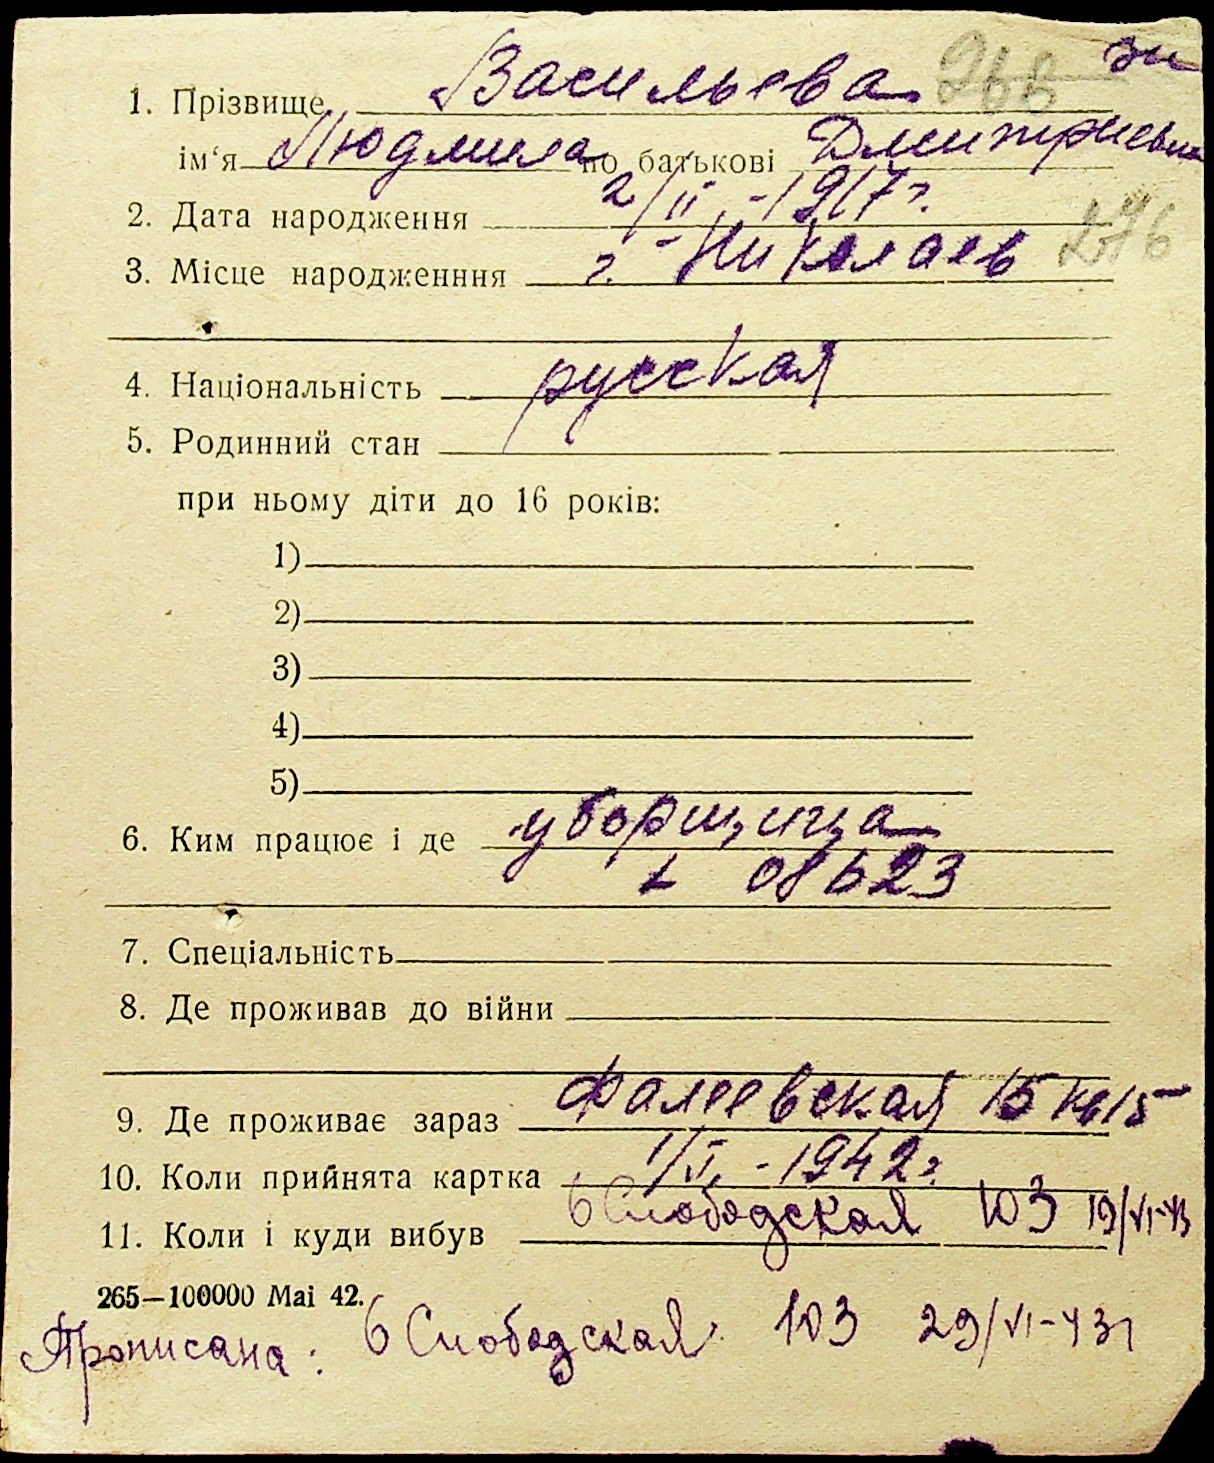 зи
1. Прізвище Васильева 268
ім‘я Людмила по батькові Дмитриевна
2. Дата народження 2/II.-1917г.
276
3. Місце народженння г.-Николаев
4. Національність русская
5. Родинний стан
при ньому діти до 16 років:
1)
2)
3)
4)
5)
6. Ким працює і де уборщица
08623
7. Спеціальність
8. Де проживав до війни
9. Де проживає зараз Фалеевская 15 кв 15
10. Коли прийнята картка -1942г.
11. Коли і куди вибув 6 Слободская 103 19/VI-43
265—100000 Mai 42.
Прописана: 6 Слободская 103 29/VI-43г